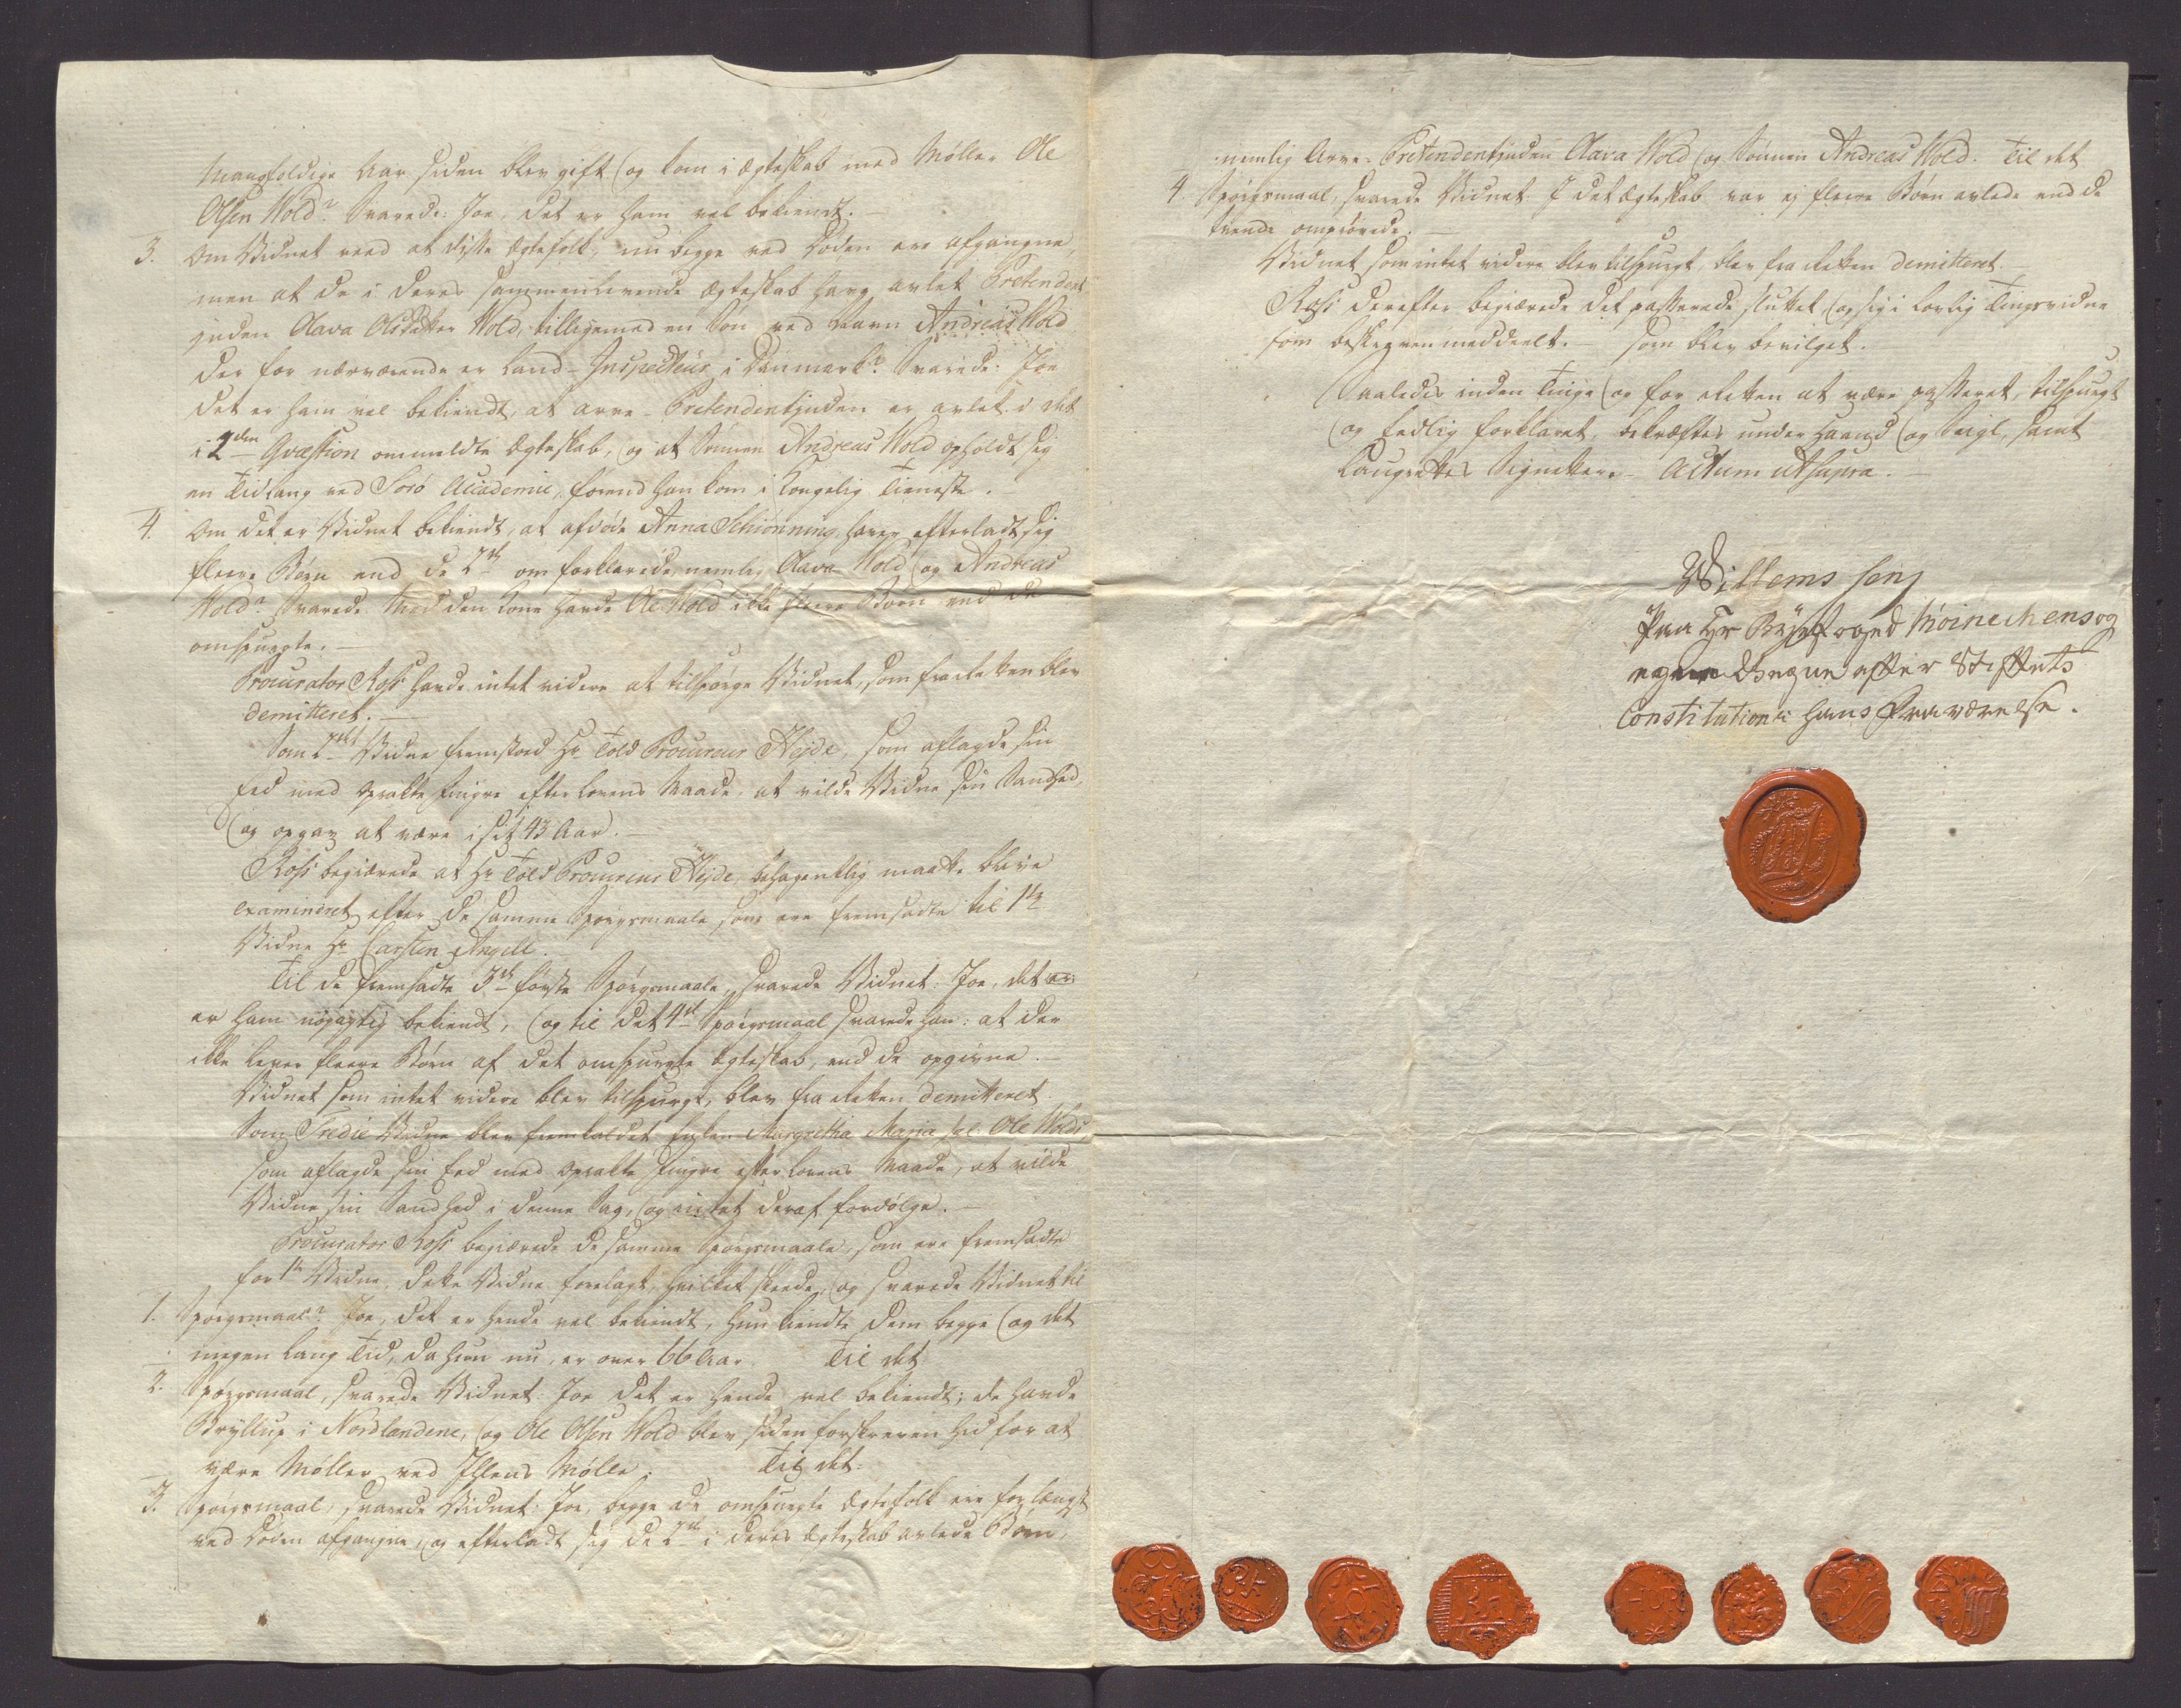 Mangfoldige Aar siden blev gift og kom i Ægteskab med Møller Ole
Olsen Wold? Svarede: Joe, det er ham vel bekiendt. –
3. Om Vidnet veed at disse Ægtefolk, nu begge ved Døden ere afgangne,
men at de i deres sammenlevende Ægteskab hav avlet Pretendent
inden Aava Olsdatter Wold, tilligemed en Søn ved Navn Andreas Wold
der for nærværende er Land-Inspecteur i Danmark? Svarede: Joe
det er ham vel bekiendt, at Arve-Pretendentinden er avlet i det
i 2den Qvæstion ommeldte Ægteskab, og at Sønnen Andreas Wold opholdt sig
en Tidlang ved Sorø Academie, førend han kom i Kongelig Tieneste. –
4. Om det er Vidnet bekiendt, at afdøde Anna Schiønning haver efterladt sig
fleere Børn end de 2de om forklarede, nemlig Aava Wold og Andreas
Wold? Svarede: Med den Kone havde Ole Wold ikke fleere Børn end de
omspurgte. –
Procurator Ross havde intet videre at tilspørge Vidnet, som fra Retten blev
demitteret. –
Som 2det Vidne fremstoed Hr Told Procureur Hejde, som aflagde sin
Eed med oprakte Fingre efter Lovens Maade, at vilde Vidne sin Sandhed,
og opgav at være i sit 43 Aar. –
Ross begiærede at Hr Told Procureur Hejde behagentlig maatte blive
examineret efter de samme Spørgsmaale som ere fremsadte til 1te
Vidne Hr Carsten Angell. –
Til de fremsadte 3de første Spørgsmaale, svarede Vidnet: Joe, det er
er ham nøyagtig bekiendt, og til det 4de Spørgsmaal svarede han: at der
ikke lever fleere Børn af det omspurgte Ægteskab, end de opgivne. –
Vidnet som intet videre blev tilspurgt, blev fra Retten demitteret.
Som Tredie Vidne blev fremkaldet Enken Margretha Maria sal. Ole Wolds
som aflagde sin Eed med oprakte Fingre efter Lovens Maade, at vilde
Vidne sin Sandhed i denne Sag, og intet deraf fordølge. –
Procurator Ross begiærede de samme Spørgsmaale, som ere fremsadte
for 1te Vidne, dette Vidne forelagt, hvilket skeede, og svarede Vidnet til
1. Spørgsmaal? Joe, det er hende vel bekiendt, hun kiendte dem begge og det
megen lang Tid, da hun nu er over 66 Aar. Til det
2. Spørgsmaal, svarede Vidnet: Joe det er hende vel bekiendt; de havde
Bryllup i Nordlandene, og Ole Olsen Wold blev siden forskreven hid for at
være Møller ved Ihlens Mølle. Til det
3. Spørgsmaal, svarede Vidnet: Joe, begge de omspurgte Ægtefolk ere for længst
ved Døden afgangne, og efterladt sig de 2de i deres Ægteskab avlede Børn,
nemlig Arve-Pretendentinden Aava Wold og Sønnen Andreas Wold. Til det
4. Spørgsmaal, svarede Vidnet: I det Ægteskab var ej fleere Børn avlede end de
tvende omprovede. –
Vidnet som intet videre blev tilspurgt, blev fra Retten demitteret.
Ross derefter begiærede det passerede sluttet, og sig i lovlig Tingsvidne
form beskreven meddeelt. – som blev bevilget.
Saaledes inden Tinge og for Retten at være passeret, tilspurgt
og Eedlig forklaret, bekræftes under Haand og Seigl, samt
Laugrettes Signetter. – Actum ut supra. –
Willemssenj
paa Hr Byefoged Høinechens og
egne Vegne efter Stiftets
Constitution i hans Fraværelse.